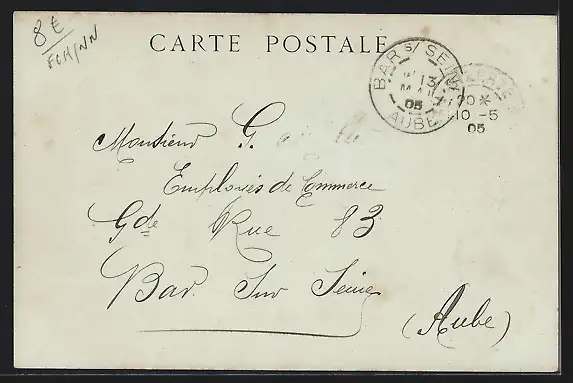 8€
FCH/NN
CARTE POSTALE
BAR S/ SEINE
13
MAI
05
AUBE
20*
10-5
05
Monsieur G.
Employés de Commerce
Gde Rue 83
Bar Sur Seine
(Aube)